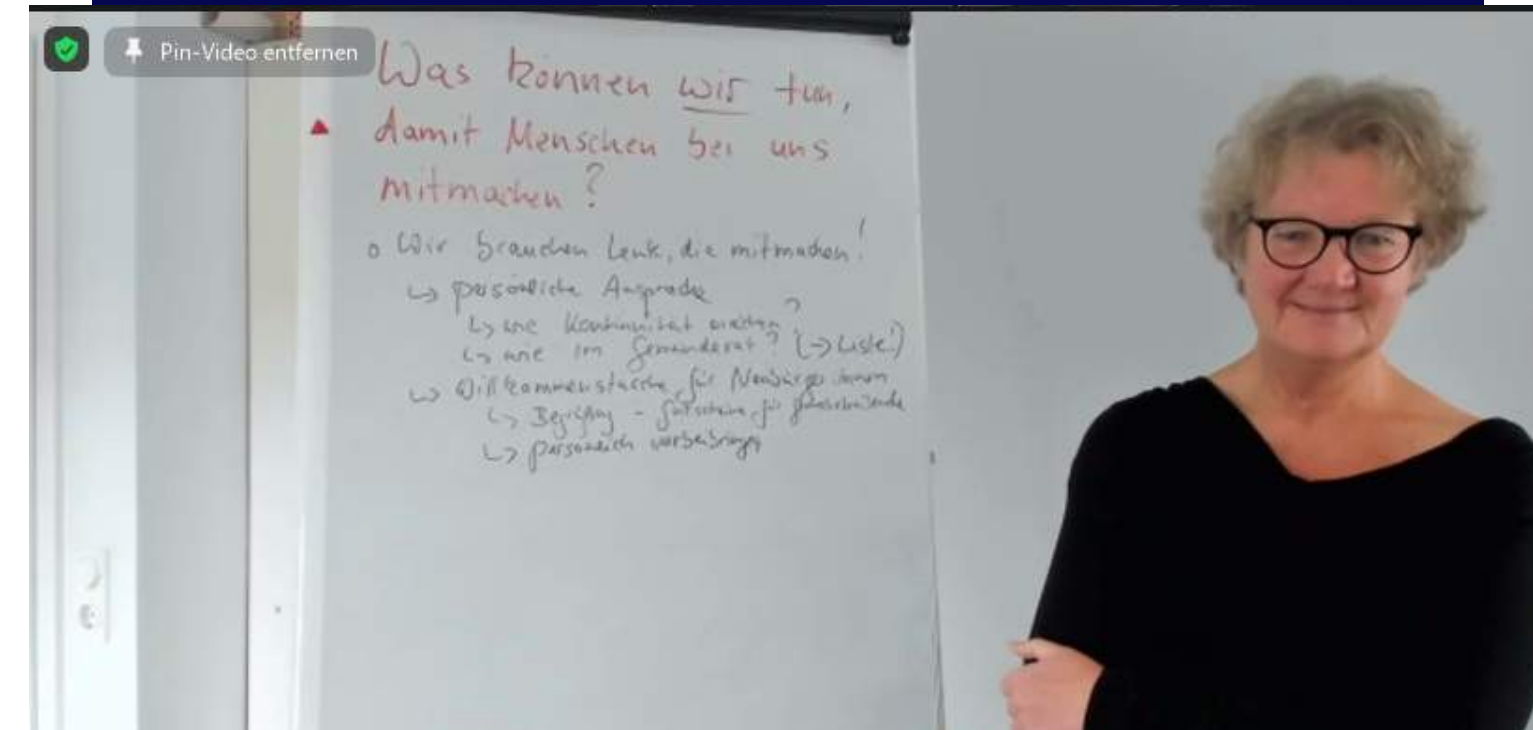 Pin-Video entfernen
Was können wir tun,
damit Menschen bei uns
mitmachen?
o Wir brauchen Leute, die mitmachen!
↳ persönliche Ansprache
↳ wie Kontinuität erreichen?
↳ wie im Gemeinderat? (→ Liste!)
↳ Willkommenstasche für Neubürger:innen
↳ Begrüßung - Gutscheine für
↳ persönlich vorbeibringen